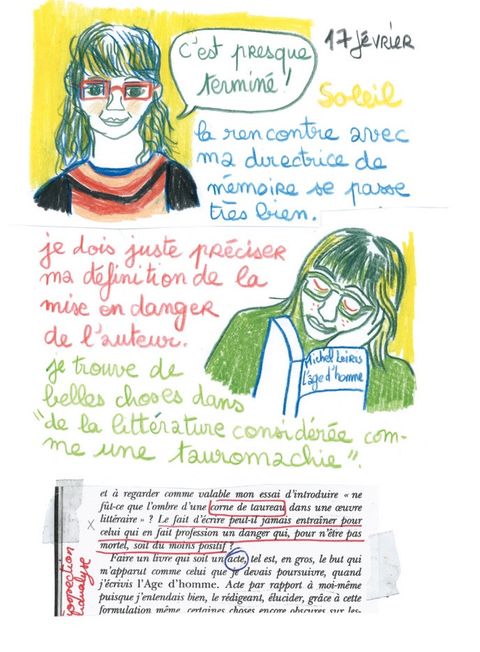 C'est presque
terminé !
17 février
Soleil
la rencontre avec
ma directrice de
mémoire se passe
très bien.
je dois juste préciser
ma définition de la
mise en danger
de l'auteur.
je trouve de
belles choses dans
"de la littérature considérée com-
me une tauromachie".
Michel Leiris
L'âge d'homme
et à regarder comme valable mon essai d'introduire « ne
fût-ce que l'ombre d'une corne de taureau dans une œuvre
littéraire » ? Le fait d'écrire peut-il jamais entraîner pour
celui qui en fait profession un danger qui, pour n'être pas
mortel, soit du moins positif ?
Faire un livre qui soit un acte, tel est, en gros, le but qui
m'apparut comme celui que je devais poursuivre, quand
j'écrivis l'Age d'homme. Acte par rapport à moi-même
puisque j'entendais bien, le rédigeant, élucider, grâce à cette
formulation même, certaines choses encore obscures sur les-